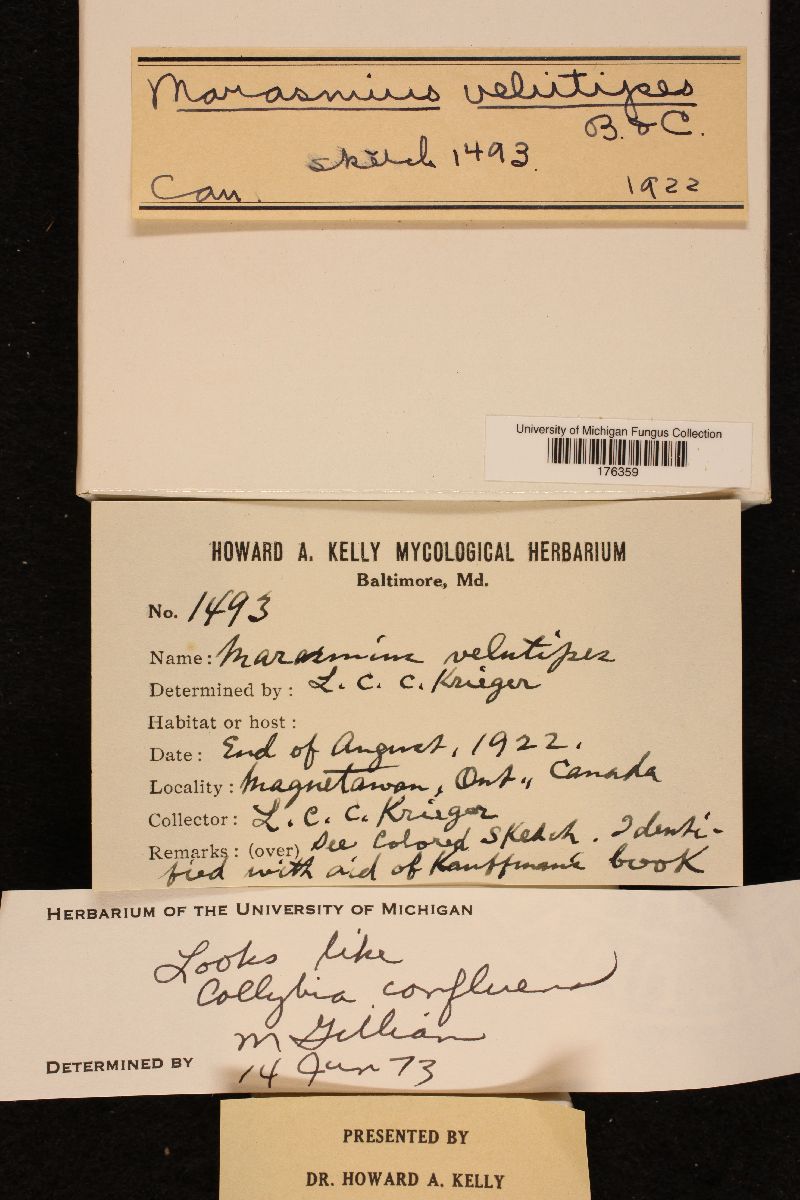 Marasmius velutipes
B. & C.
sketch 1493.
Can. 1922
University of Michigan Fungus Collection
176359
HOWARD A. KELLY MYCOLOGICAL HERBARIUM
Baltimore, Md.
No. 1493
Name: Marasmius velutipes
Determined by: L. C. C. Krieger
Habitat or host:
Date: End of August, 1922.
Locality: Magnetawan, Ont., Canada
Collector: L. C. C. Krieger
Remarks: (over) See Colored Sketch. Identi-
fied with aid of Kauffman's book
HERBARIUM OF THE UNIVERSITY OF MICHIGAN
Looks like
Collybia confluens
M Gillian
DETERMINED BY 14 Jun 73
PRESENTED BY
DR. HOWARD A. KELLY